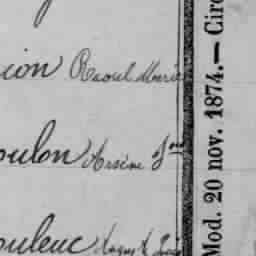 ion Raoul Marie
oulon Arsène J
ouleuc August
Mod. 20 nov. 1874.— Circ